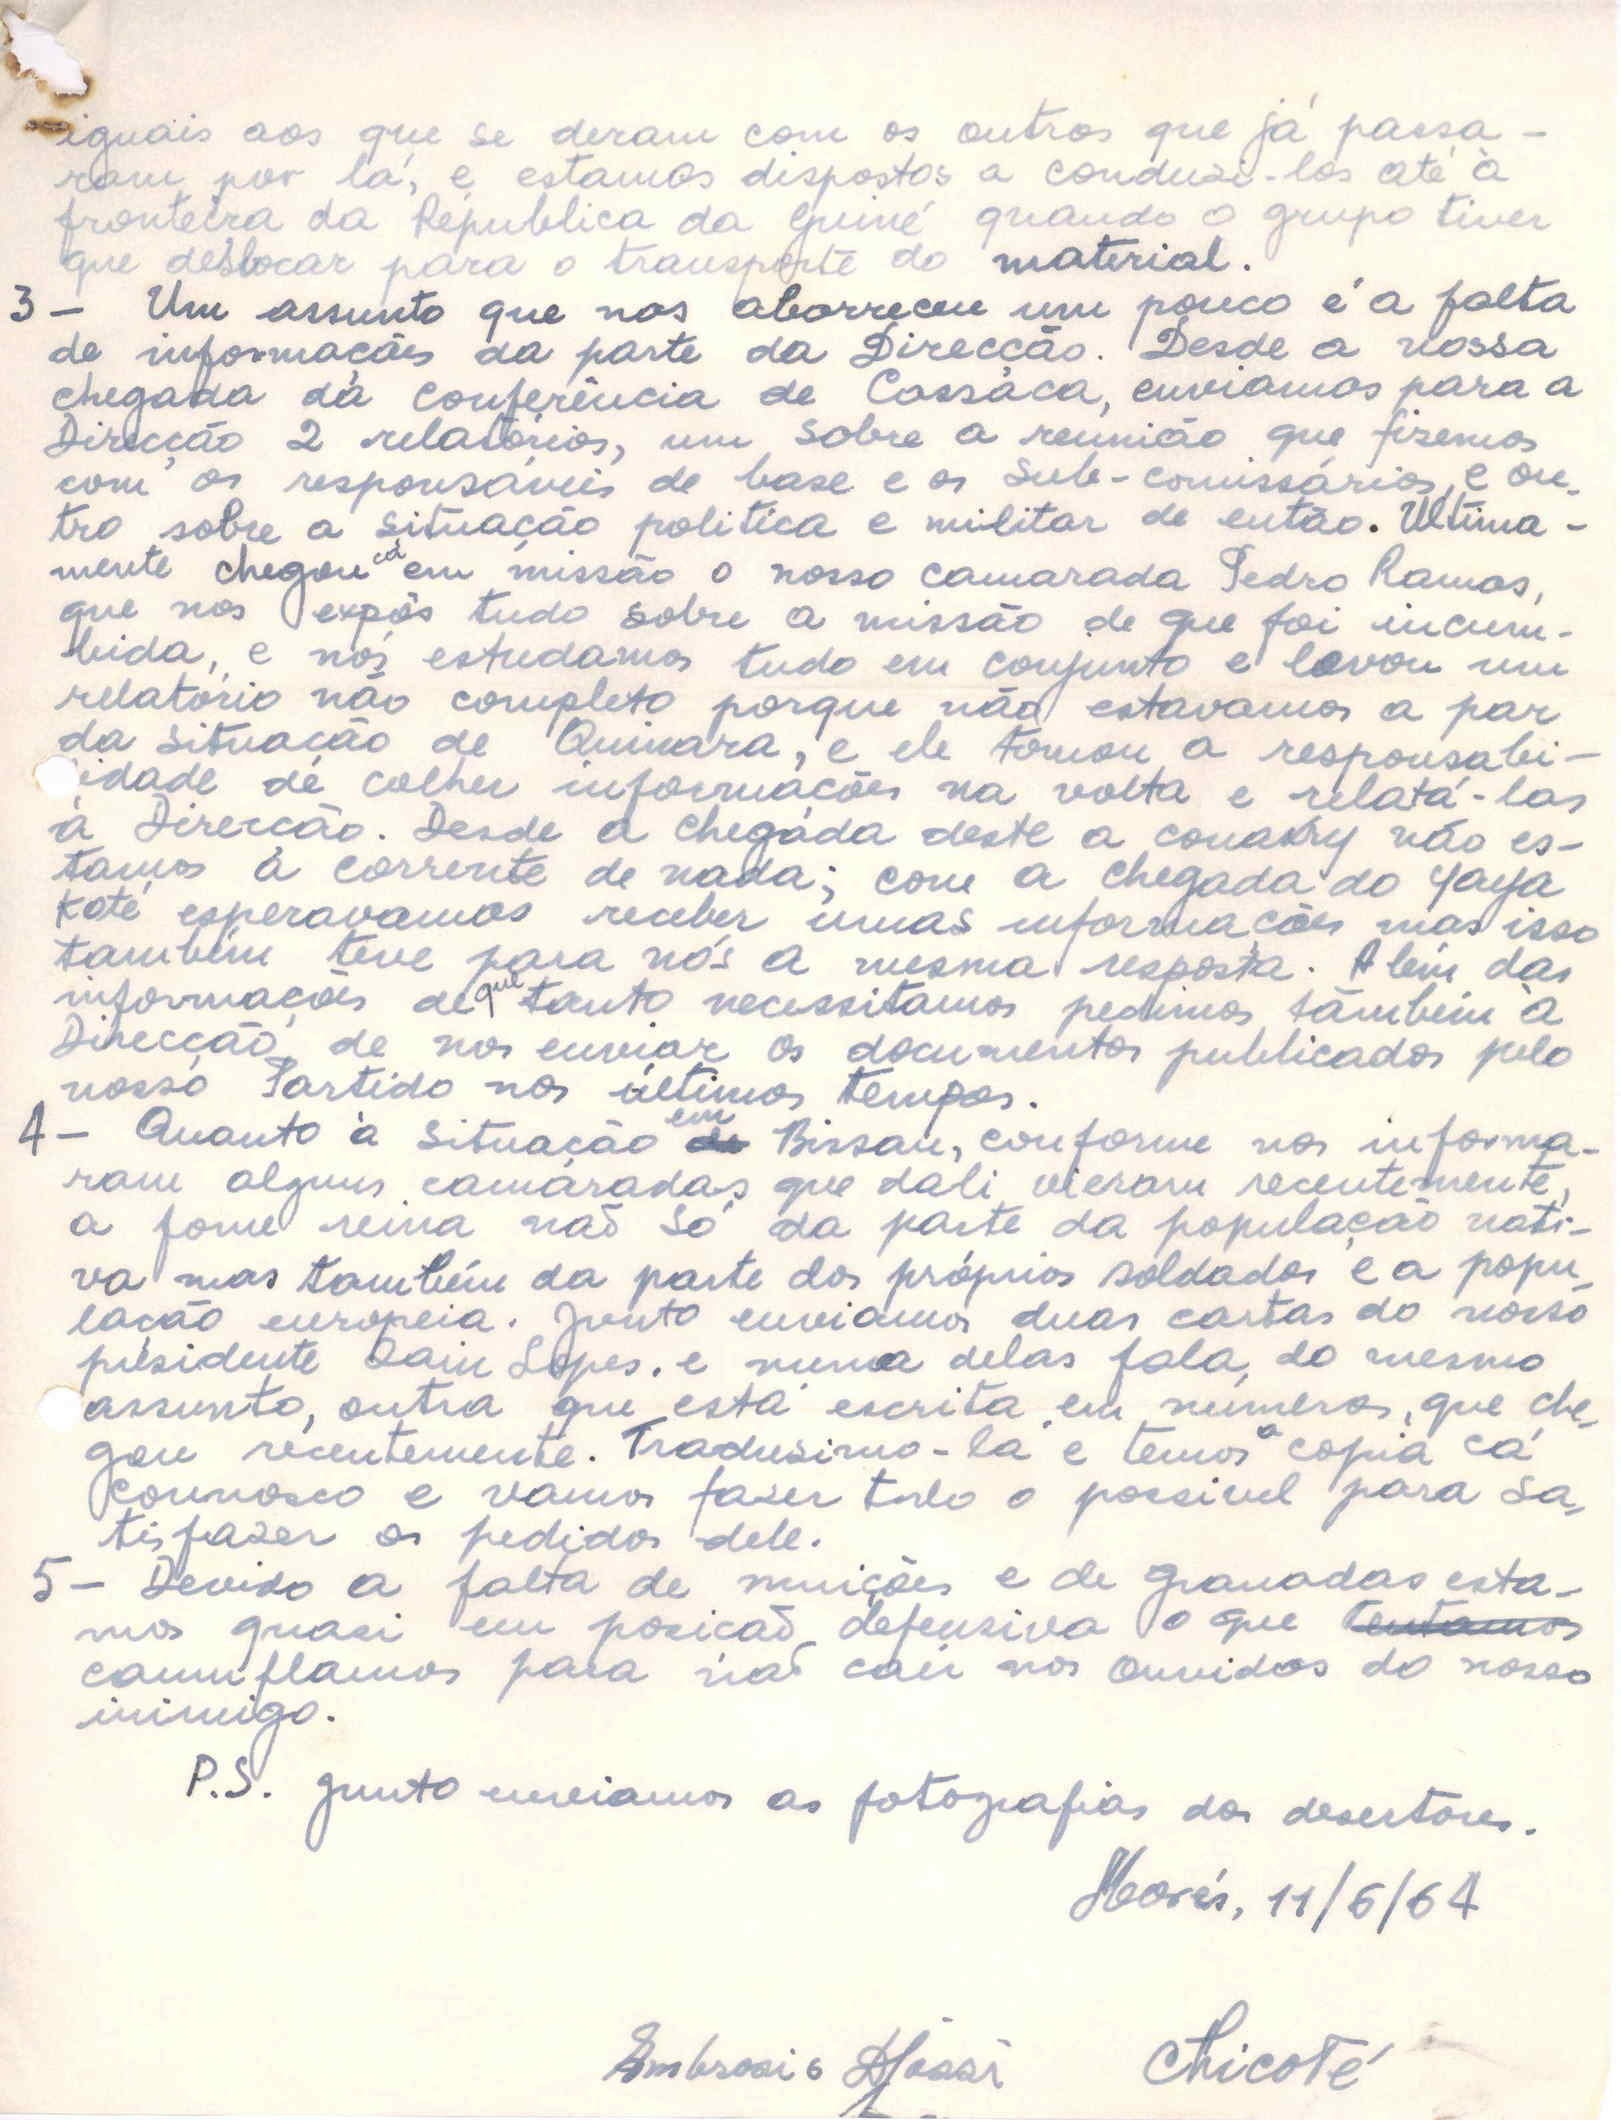 iguais aos que se deram com os outros que já passa-
ram por lá, e estamos dispostos a conduzi-los até à
fronteira da Républica da Guiné quando o grupo tiver
que deslocar para o transporte do material.
3 - Um assunto que nos aborreceu um pouco é a falta
de informações da parte da Direcção. Desde a nossa
chegada da Conferência de Cassacá, enviamos para a
Direcção 2 relatórios, um sobre a reunião que fizemos
com os responsáveis de base e os sub-comissários, e ou-
tro sobre a situação politica e militar de então. Ultima-
mente chegou cá em missão o nosso camarada Pedro Ramos,
que nos expôs tudo sobre a missão de que foi incum-
bida, e nós estudamos tudo em conjunto e levou um
relatório não completo porque não estavamos a par
da situação de Quinara, e ele tomou a responsabi-
lidade de colher informações na volta e relatá-las
à Direcção. Desde a chegada deste a conakry não es-
tamos à corrente de nada; com a chegada do Yaya
Koté esperavamos receber umas informações mas isso
também teve para nós a mesma resposta. Além das
informações de que tanto necessitamos pedimos também à
Direcção de nos enviar os documentos publicados pelo
nosso Partido nos últimos tempos.
4 - Quanto à situação em Bissau, conforme nos informa-
ram alguns camaradas que dali vieram recentemente,
a fome reina não só da parte da população nati-
va mas também da parte dos próprios soldados e a popu-
lação europeia. Junto enviamos duas cartas do nosso
présidente Rain Lopes, e numa delas fala do mesmo
assunto, outra que está escrita em números, que che-
gou recentemente. Tradusimo-la e temos a copia cá
connosco e vamos fazer tudo o possivel para sa-
tisfazer os pedidos dele.
5 - Devido a falta de munições e de granadas esta-
mos quasi em posição defensiva o que tentamos
camuflamos para não cair nos ouvidos do nosso
inimigo.
P.S. Junto enviamos as fotografias dos desertores.
Morés, 11/6/64
Ambrosio Djassi Chicoté